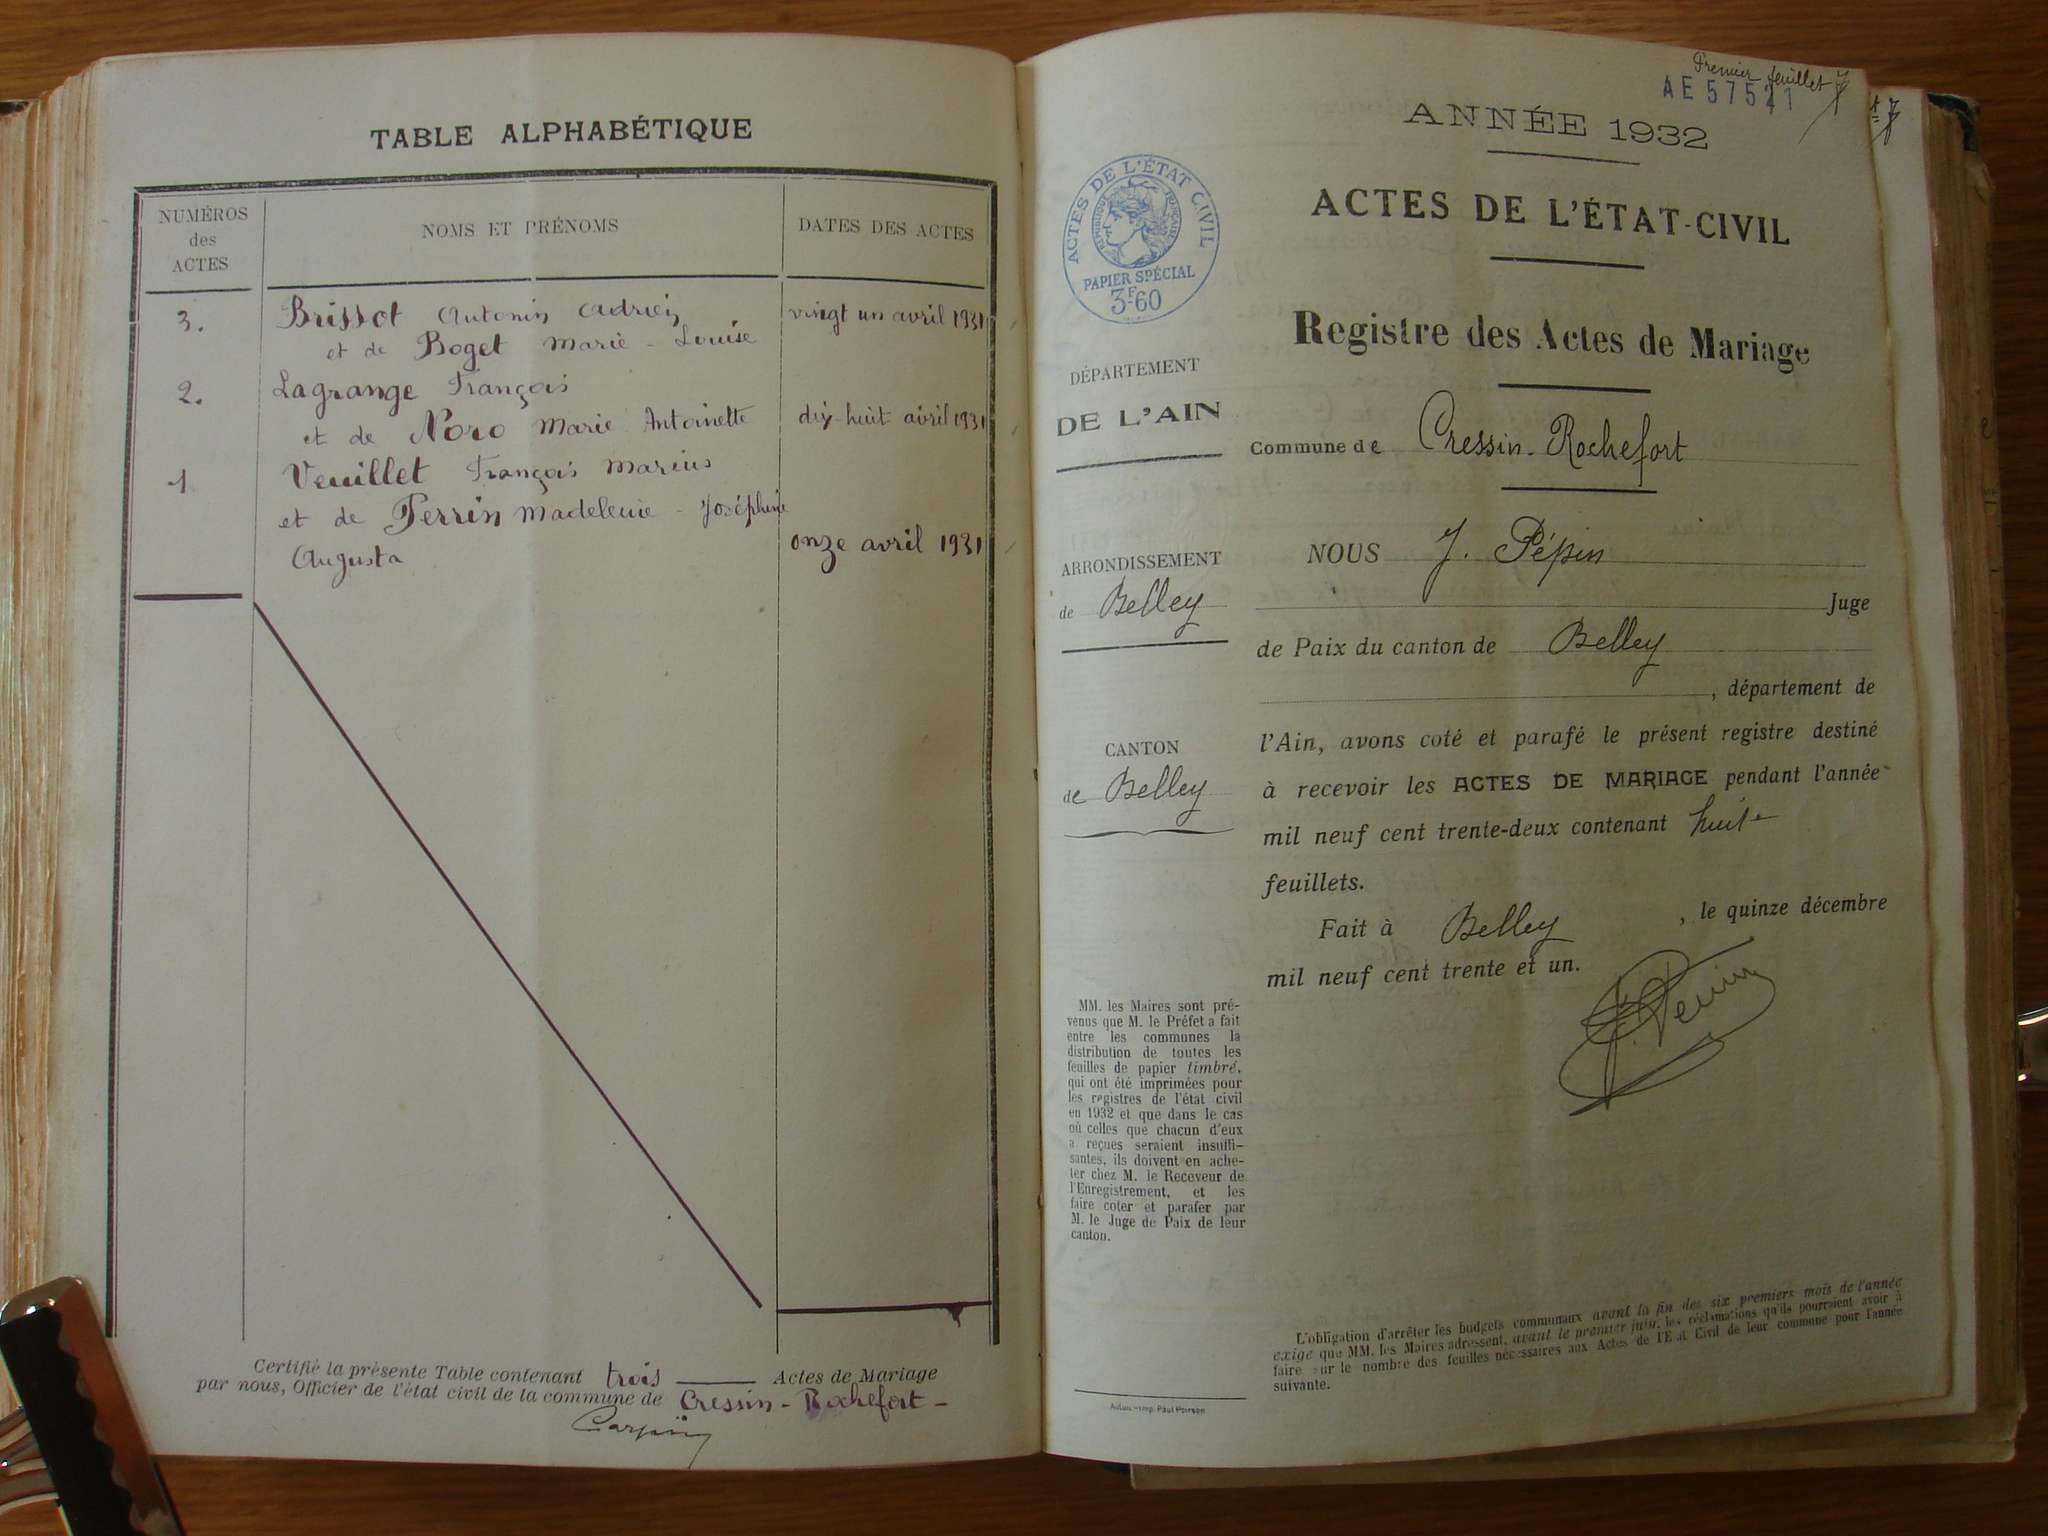 TABLE ALPHABÉTIQUE
NUMÉROS
des
ACTES
NOMS ET PRÉNOMS
DATES DES ACTES
3. Brissot Antonin Adrien vingt un avril 1931
et de Boget Marie - Louise
2. Lagrange François
et de Noro Marie Antoinette dix huit avril 1931
1 Veuillet François Marius
et de Perrin Madeleine - Joséphine
Augusta onze avril 1931
Certifié la présente Table contenant trois Actes de Mariage
par nous, Officier de l'état civil de la commune de Cressin - Rochefort -
Premier feuillet
AE 57521
ANNÉE 1932
ACTES DE L'ÉTAT-CIVIL
Registre des Actes de Mariage
Commune de Cressin-Rochefort
ACTES DE L'ÉTAT CIVIL
RÉPUBLIQUE FRANÇAISE
PAPIER SPÉCIAL
3F60
DÉPARTEMENT
DE L'AIN
ARRONDISSEMENT
de Belley
CANTON
de Belley
NOUS J. Pépin
Juge
de Paix du canton de Belley
, département de
l'Ain, avons coté et parafé le présent registre destiné
à recevoir les ACTES DE MARIAGE pendant l'année
mil neuf cent trente-deux contenant huit
feuillets.
Fait à Belley, le quinze décembre
mil neuf cent trente et un.
MM. les Maires sont pré-
venus que M. le Préfet a fait
entre les communes la
distribution de toutes les
feuilles de papier timbré,
qui ont été imprimées pour
les registres de l'état civil
en 1932 et que dans le cas
où celles que chacun d'eux
a reçues seraient insuffi-
santes, ils doivent en ache-
ter chez M. le Receveur de
l'Enregistrement, et les
faire coter et parafer par
M. le Juge de Paix de leur
canton.
L'obligation d'arrêter les budgets communaux avant la fin des six premiers mois de l'année
exige que MM. les Maires adressent, avant le premier juin, les réclamations qu'ils pourraient avoir à
faire sur le nombre des feuilles nécessaires aux Actes de l'Etat Civil de leur commune pour l'année
suivante.
Autun - Imp. Paul Poirson